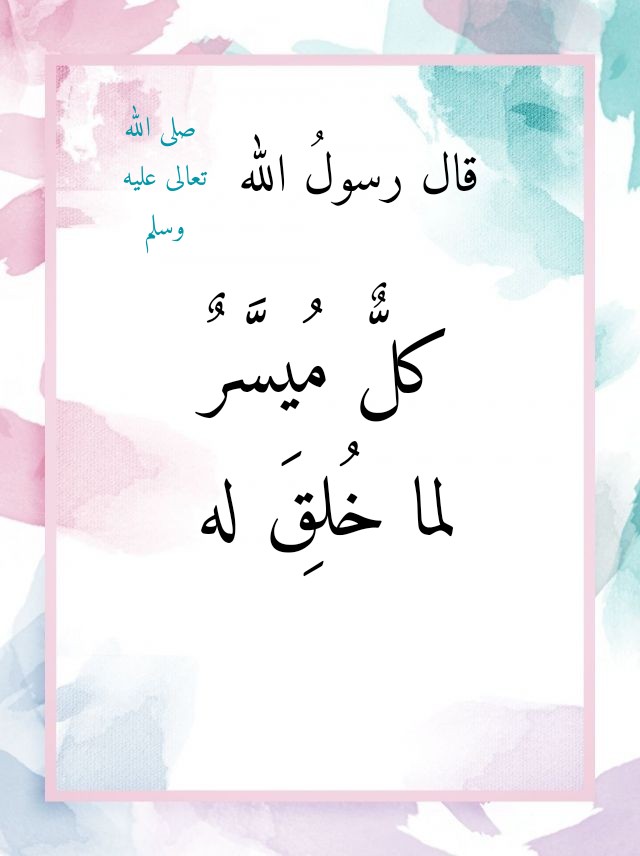 قال رسولُ الله
صلى الله
تعالى عليه
وسلم
كلٌّ مُيسَّرٌ
لما خُلِقَ له